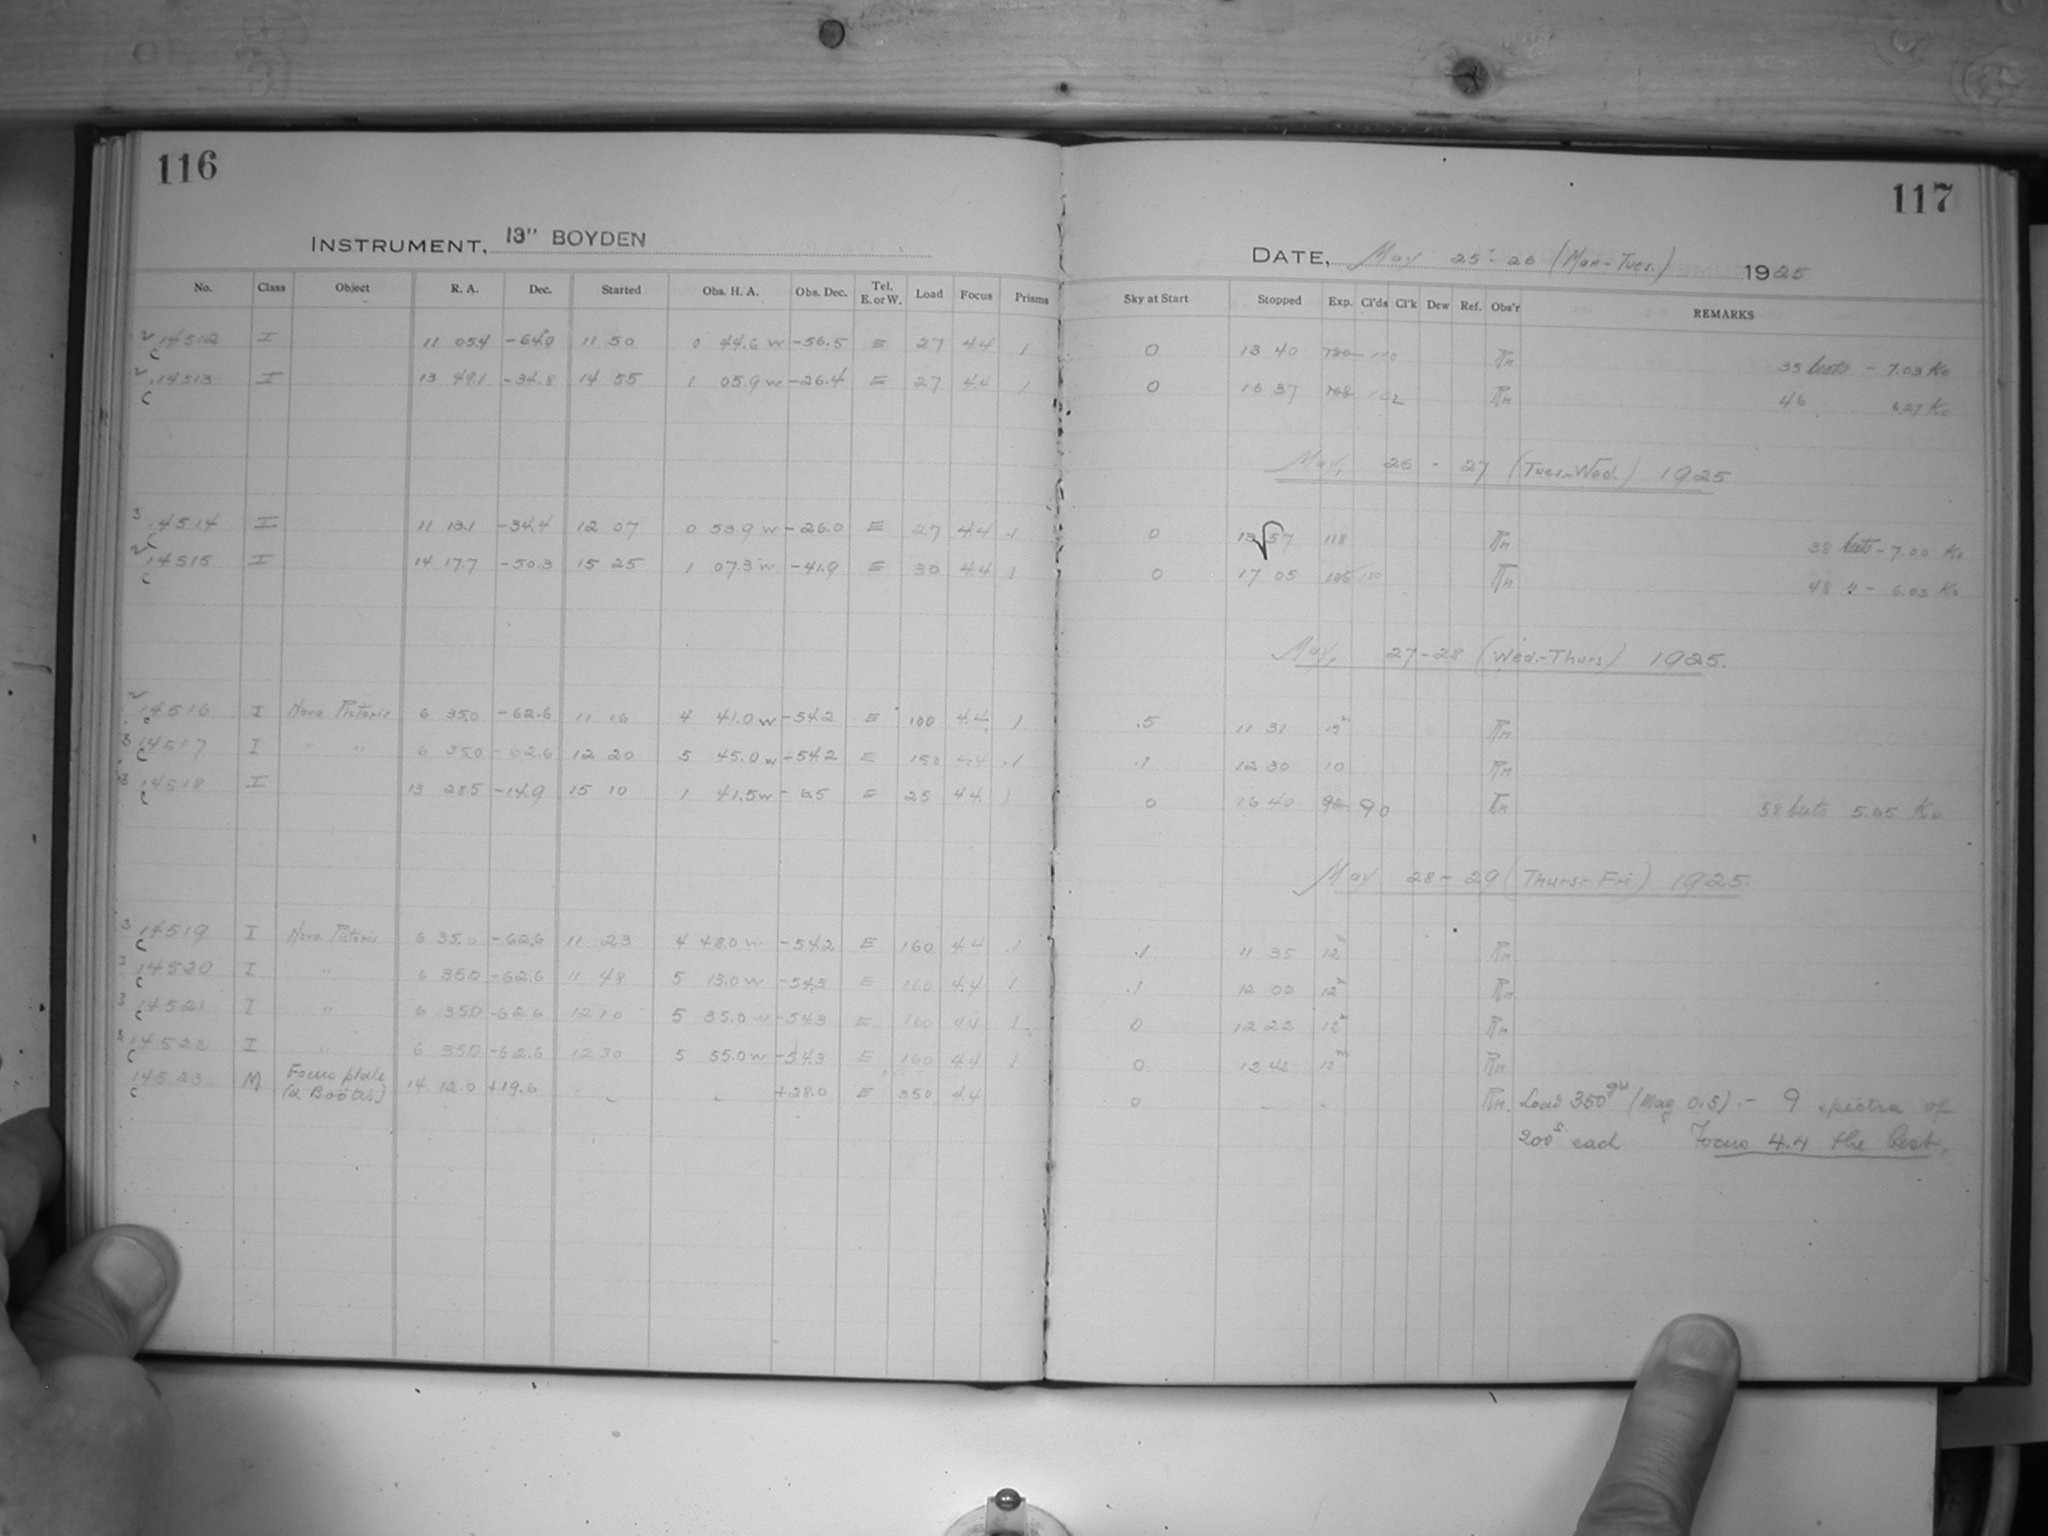 116
INSTRUMENT, 13" BOYDEN
No. Class Object R. A. Dec. Started Obs. H. A. Obs. Dec. Tel. E. or W. Load Focus Prisms
14512 I 11 05.4 -64.9 11 50 0 44.6 w -56.5 E 27 4.4 1
14513 I 13 49.1 -34.8 14 55 1 05.9 w -26.4 E 27 4.4 1
14514 I 11 13.1 -34.4 12 07 0 53.9 w -26.0 E 27 4.4 1
14515 I 14 17.7 -50.3 15 25 1 07.3 w -41.9 E 30 4.4 1
14516 I Nova Pictoris 6 35.0 -62.6 11 16 4 41.0 w -54.2 E 100 4.4 1
14517 I " " 6 35.0 -62.6 12 20 5 45.0 w -54.2 E 150 4.4 1
14518 I 13 28.5 -14.9 15 10 1 41.5 w -6.5 E 25 4.4 1
14519 I Nova Pictoris 6 35.0 -62.6 11 23 4 48.0 w -54.2 E 160 4.4 1
14520 I " 6 35.0 -62.6 11 48 5 13.0 w -54.3 E 160 4.4 1
14521 I " 6 35.0 -62.6 12 10 5 35.0 w -54.3 E 160 4.4 1
14522 I " 6 35.0 -62.6 12 30 5 55.0 w -54.3 E 160 4.4 1
14523 M Focus plate (α Boötis) 14 12.0 +19.6 - - +28.0 E 350 4.4
117
DATE, May 25-26 (Mon-Tues.) 1925
Sky at Start Stopped Exp. Cl'ds Cl'k Dew Ref. Obs'r REMARKS
0 13 40 110 Rn 35 beats - 7.03 Ko
0 16 37 102 Rn 46 6.27 Ko
May, 26 - 27 (Tues-Wed.) 1925
0 13 57 118 Rn 38 beats - 7.00 Ko
0 17 05 Rn 48 " - 6.03 Ko
May, 27-28 (Wed.-Thurs) 1925.
.5 11 31 15 Rn
.1 12 30 10 Rn
0 16 40 90 Rn 58 beats 5.65 Ko
May 28-29 (Thurs-Fri) 1925.
.1 11 35 12 Rn
.1 12 00 12 Rn
0 12 22 12 Rn
0 12 42 12m Rn
0 - - Rn. Load 350 (Mag 0.5) - 9 spectra of
200s each Focus 4.4 the best.